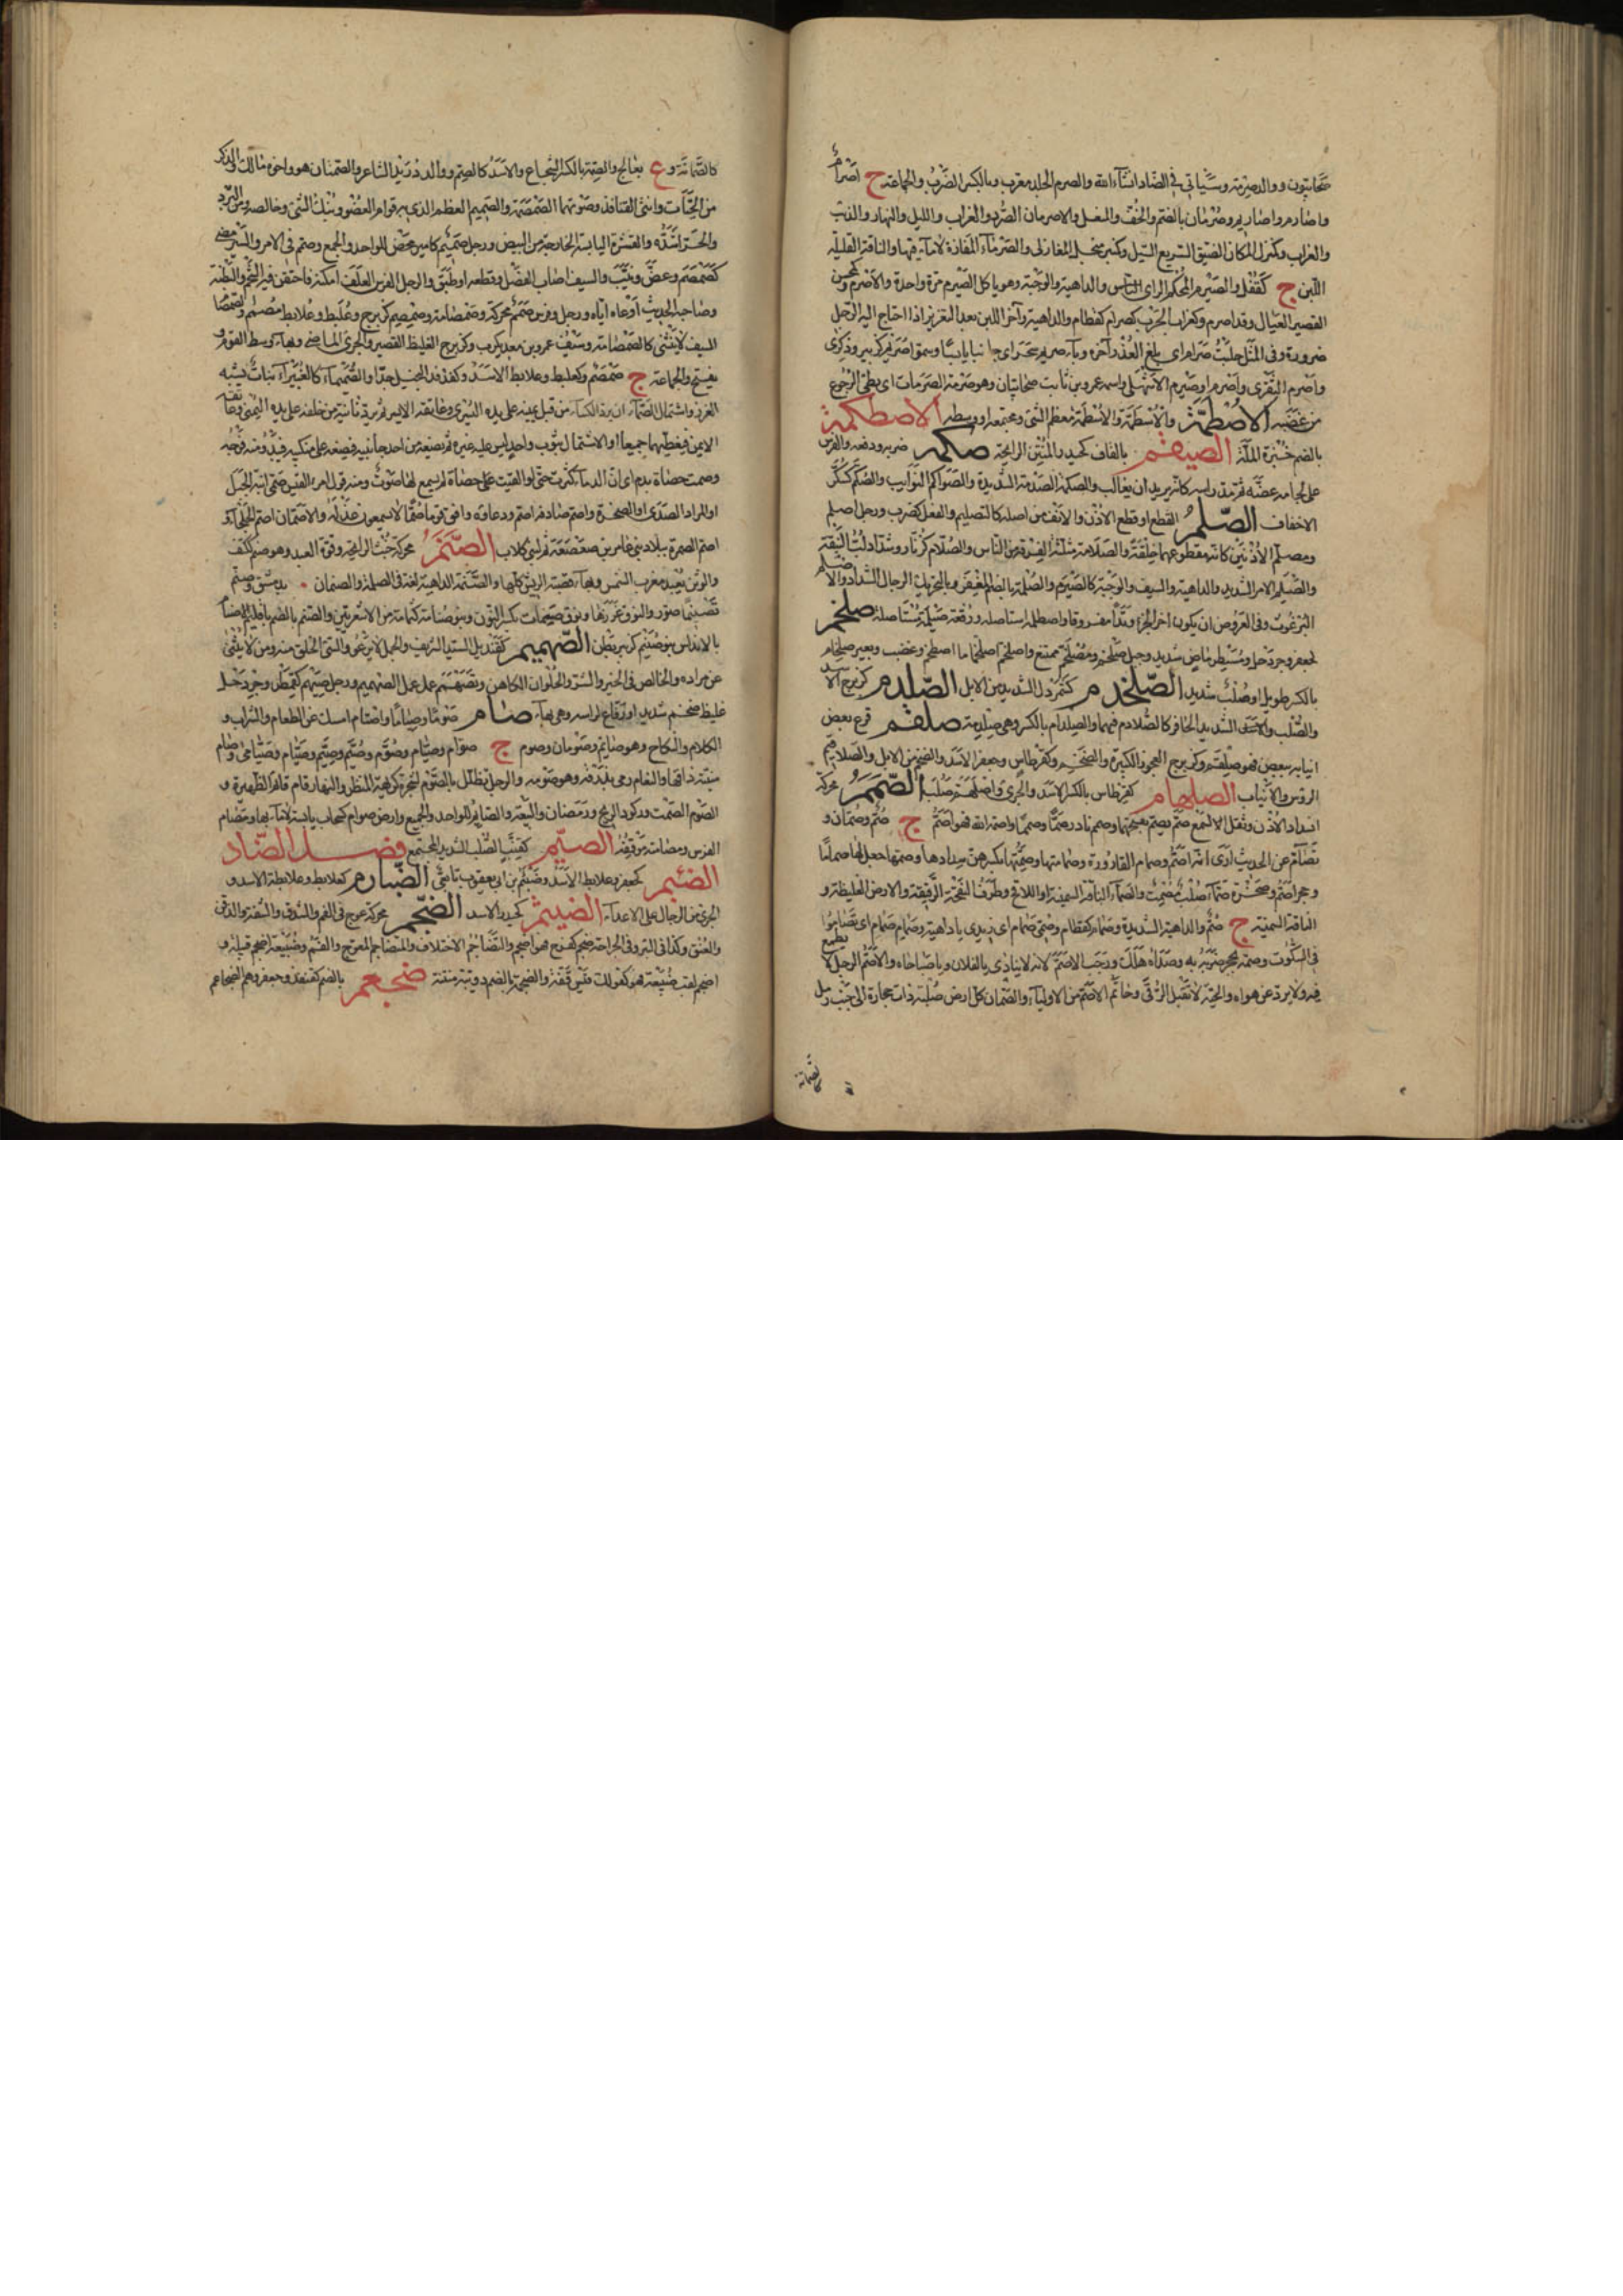 صحابيون ووالد صرمة وسياتي في الضاد ان شاء الله والصرم الجلد معرب وبالكسر الضرب والجماعة ج اصرام
واصارم واصاريم وصرمان بالضم والخف والمنعل والاصرمان الصرد والغراب والليل والنهار والذئب
والغراب وكمنزل المكان الضيق السريع السيل وكمنبر منجل المغازلي والصرماء المفازة لا ماء فيها والناقة القليلة
اللبن ج كقفل والصيرم المحكم الراي والداهية والوجبة وهو ياكل الصيرم مرة واحدة والاصرم وكمحسن
الفقير العيال وقد اصرم وكغراب الحرب كصرام كقطام والداهية وآخر اللبن بعد التغزيز اذا احتاج اليه الرجل
ضرورة وفي المثل حلبت صرام اي بلغ العذر آخره وجاء صريم سحر اي جا خائبا يائسا وسموا صريم كزبير وذكرى
واصرم الشقري واصرم او صيرم الاشهلي واسمه عمرو بن ثابت صحابيان وهو صرمة الصرمات اي بطئ الرجوع
من غضبه الاصطمة والاسطمة معظم الشئ ومجتمعه او وسطه الاصطكمة
بالضم خبزة الملة الصيقم بالقاف كحيدر المنتن الرائحة صكمه ضربه ودفعه والفرس
على لجامه عضه ثم مد راسه كانه يريد ان يغالب والصكمة الصدمة الشديدة والصواكم النوائب والصكم كسكر
الاخفاف الصلم القطع او قطع الاذن والانف من اصله كالتصليم والفعل كضرب ورجل اصلم
ومصلم الاذنين كانه مقطوعهما خلقة والصلامة مثلثة الفرقة من الناس والصلام كزنار وشداد لب النبقة
والصيلم الامر الشديد والداهية والسيف والوجبة كالصيرم والصلمة بالضم المغفر وبالتحريك الرجال الشداد والاصلم
البرغوث وفي العروض ان يكون اخر الجزء وتدا مفروقا واصطلمه استاصله ووقعة صيلمة مستاصلة صلخم
كجعفر وجردحل ومسبطر ماض شديد وجبل صلخم ومصلخم ممتنع واصلخم اصلخماما اصطخم وغضب وبعير صلخام
بالكسر طويل او صلب شديد الصلخدم كشمردل الشديد من الابل الصلدم كزبرج الاسد
والصلب والشديد الحافر كالصلادم فيهما والصلدام بالكسر وهي صلدمة صلقم قرع بعض
انيابه ببعض فهو صلقم وكزبرج العجوز الكبيرة والضخم وكقرطاس وجعفر الاسد والضخم من الابل والصلاقم
الرؤس والانياب الصلهام كقرطاس بالكسر الاسد والجرئ واصلهم صلب الصمم محركة
انسداد الاذن وثقل السمع صم يصم بفتحهما وصمم نادر صما وصمما واصمه الله فهو اصم ج صم وصمان و
تصام عن الحديث ارى انه اصم وصمام القارورة وصمامتها وصمتها بكسرهن سدادها وصمها جعل لها صماما
وحجر اصم وصخرة صماء صلب مصمت والصماء الناقة السمينة او اللاقح وطرف العفجة الرقيقة والارض الغليظة و
الناقة السمينة ج صم والداهية الشديدة وصمام كقطام وصمي صمام اي زيدي يا داهية وصمام صمام اي تصاموا
في السكوت وصمه بحجر ضربه به وصداه هلك ورجب الاصم لانه لا ينادى يالفلان ويا صباحاه والاصم الرجل لا يطمع
فيه ولا يرد عن هواه والحية لا تقبل الرقى وحاتم الاصم من الاولياء والصمان كل ارض صلبة ذات حجارة الى جنب رمل
كالصمانة
كالصمانة وع بعالج والصمة بالكسر الشجاع والاسد كالصم ووالد دريد الشاعر والصمتان هو واخوه مالك والذكر
من الحيات وانثى القنافذ وصوتها الصمصمة والصميم العظم الذي به قوام العضو وبنك الشئ وخالصه ومن البرد
والحر اشده والقشرة اليابسة الخارجة من البيض ورجل صميم كامير محض للواحد والجمع وصمم في الامر والسير مضى
كصمصم وعض ونيب والسيف اصاب المفصل وقطعه او طبق والرجل الفرس العلف امكنه فاحتقن فيه الشحم والبطنة
وصاحبه الحديث اوعاه اياه ورجل وفرس صمم محركة وصمصامة وصمصم كزبرج وعلبط وعلابط مصمم والصمصام
السيف لا ينثني كالصمصامة وسيف عمرو بن معد يكرب وكزبرج الغليظ القصير والجرئ الماضي وبهاء وسط القوم و
يفتح والجماعة ج صمصم وكعلبط وعلابط الاسد وكقنفذ البخيل جدا والصميماء كالغبيراء نبات يشبه
الغرز واشتمال الصماء ان يرد الكساء من قبل يمينه على يده اليسرى وعاتقه الايسر ثم يرده ثانية من خلفه على يده اليمنى وعاتقه
الايمن فيغطيهما جميعا او الاشتمال بثوب واحد ليس عليه غيره ثم يضعه من احد جانبيه فيضعه على منكبه فيبدو منه فرجه
وصمت حصاة بدم اي ان الدماء كثرت حتى لو القيت على حصاة لم يسمع لها صوت ومنه قول امرء القيس صمي ابنة الجبل
او المراد الصدى او الصخرة واصم صادفه اصم ودعاؤه وافق قوما صما لا يسمعون عذله والاصمان اصم الجلحاء و
اصم السمرة ببلاد بني عامر بن صعصعة ثم لبني كلاب الصنم محركة خبث الرائحة وقوة العبد وهو صنم ككتف
والوثن يعبد معرب شمن وبهاء قصبة الريش كلها والصنمة الداهية لغة في الصلمة والصنمان ة بدمشق وصنم
تصنيما صور والنوق غزرها ونوق صنمات بكسر النون وبنو صنامة كثمامة من الاشعريين والصنم بالضم باقليم ايضا
بالاندلس وبنو صنيم كزبير بطن الصهميم كقنديل السيد الشريف والجمل لا يرغو والسئ الخلق منه ومن لا ينثني
عن مراده والخالص في الخير والشر والحلوان الكاهن وتصهم عمل عمل الصهميم ورجل صيهم كقمطر وجردحل
غليظ ضخم شديد او رفاع لراسه وهي بهاء صام صوما وصياما واصطام امسك عن الطعام والشراب و
الكلام والنكاح وهو صائم وصومان وصوم ج صوام وصيام وصوم وصيم وصيم وصيام وصيامى وصام
منيته ذاقها والنعام رمى بذرقه وهو صومه والرجل تظلل بالصوم لشجرة كريهة المنظر والنهار قام قائم الظهيرة و
الصوم الصمت وركود الريح ورمضان والبيعة والصائم للواحد والجميع وارض صوام كسحاب يابسة لا ماء بها ومصام
الفرس ومصامته موقفه الصيم كقنب الصلب الشديد المجتمع فصل الضاد
الضبثم كجعفر وعلابط الاسد وضبثم بن ابي يعقوب تابعي الضبارم كعلابط وعلابطة الاسد و
الجرئ من الرجال على الاعداء الضيثم كحيدر الاسد الضجم محركة عوج في الفم والشدق والشفة والذقن
والعنق وكذا في البئر وفي الجراحة ضجم كفرح فهو اضجم والتضاجم الاختلاف والمتضاجم المعوج والفم وضبيعة اضجم قبيلة و
اضجم لقب ضبيعة فهو كقولك قيس قفة والضجمة بالضم دويبة منتنة ضجعم بالضم كقنفذ وجعفر وهم الضجاعم